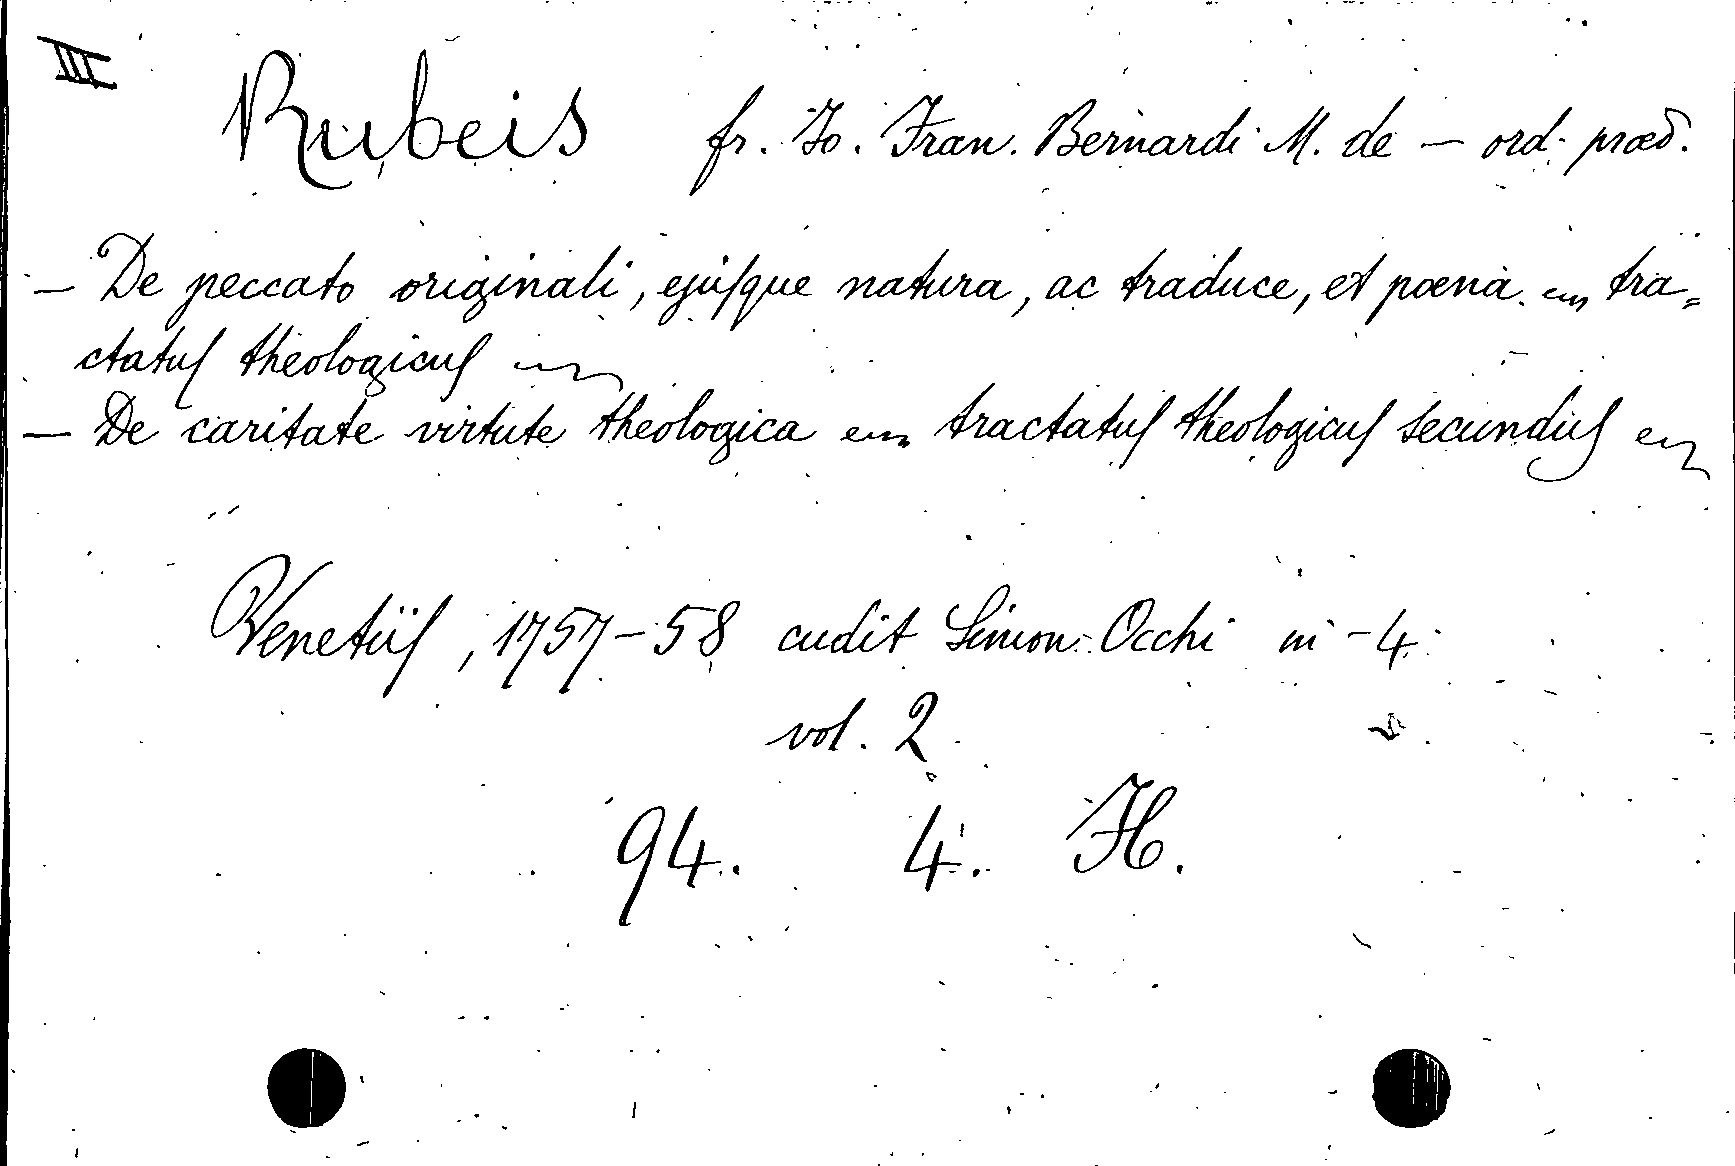 III
Rubeis fr. Jo. Fran. Bernardi M. de — ord. præd.
— De peccato originali, ejuſque natura, ac traduce, et pœna. ~ tra=
ctatuſ theologicuſ ~
— De caritate virtute theologica ~ tractatuſ theologicuſ secunduſ ~
Venetiiſ, 1757-58 cudit Simon Occhi in -4.
vol. 2
94. 4. H.